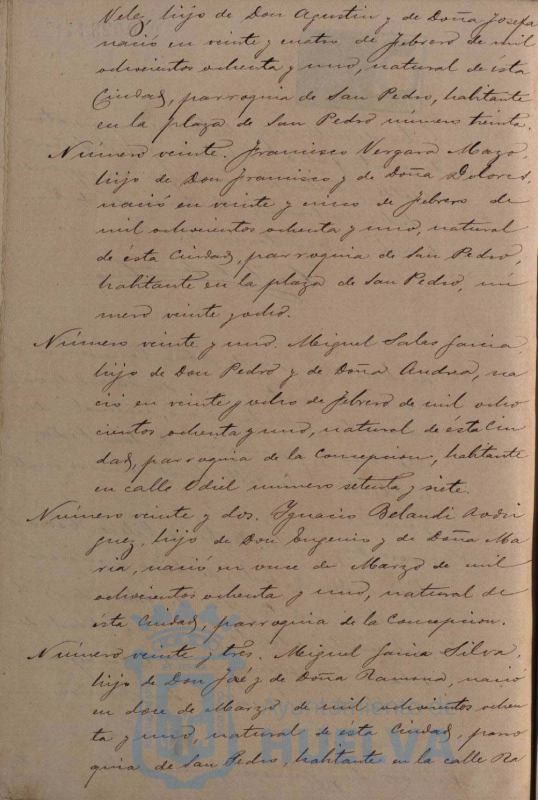 Velez, hijo de Don Agustin y de Doña Josefa
nació en veinte y cuatro de Febrero de mil
ochocientos ochenta y uno, natural de ésta
Ciudad, parroquia de San Pedro, habitante
en la plaza de San Pedro número treinta.
Número veinte. Francisco Vergara Mazo,
hijo de Don Francisco y de Doña Dolores,
nació en veinte y cinco de Febrero de
mil ochocientos ochenta y uno, natural
de ésta Ciudad, parroquia de San Pedro,
habitante en la plaza de San Pedro, nú
mero veinte y ocho.
Número veinte y uno. Miguel Salas Garcia,
hijo de Don Pedro y de Doña Andrea, na
ció en veinte y ocho de Febrero de mil ocho
cientos ochenta y uno, natural de ésta Ciu
dad, parroquia de la Concepcion, habitante
en calle Odiel número setenta y siete.
Número veinte y dos. Ignacio Belandi Rodri
guez, hijo de Don Eugenio y de Doña Ma
ria, nació en once de Marzo de mil
ochocientos ochenta y uno, natural de
ésta Ciudad, parroquia de la Concepcion.
Número veinte y tres. Miguel Garcia Silva,
hijo de Don José y de Doña Ramona, nació
en doce de Marzo de mil ochocientos ochen
ta y uno, natural de ésta Ciudad, parro
quia de San Pedro, habitante en la calle Ra
Ayuntamiento de
HUELVA